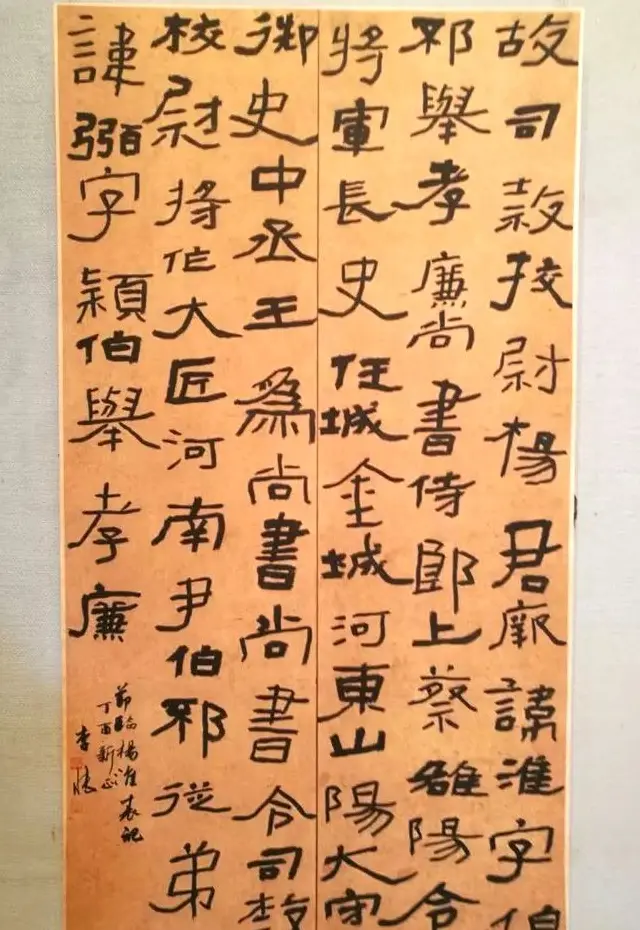 故司隸挍尉楊君厥諱淮字伯
邳舉孝廉尚書侍郎上蔡雒陽令
將軍長史任城金城河東山陽大守
御史中丞王為尚書尚書令司隸
校尉将作大匠河南尹伯邳從弟
諱弼字穎伯舉孝廉
節臨楊淮表記
丁酉新正
李